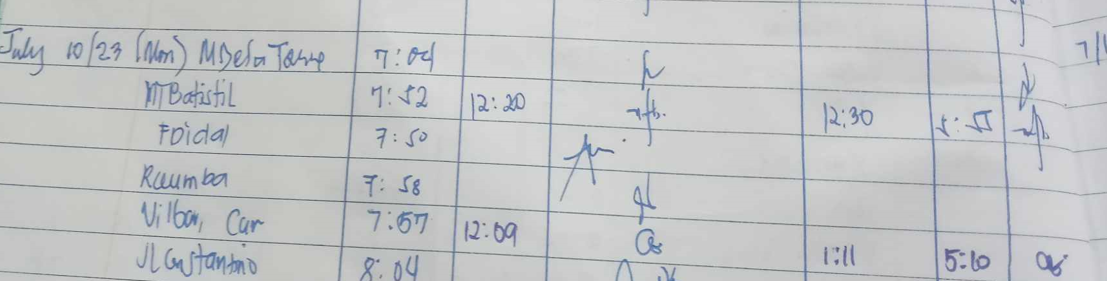 July 10/23 (Mon) MDela Torre 7:04
MBatistil 7:52 12:20 mfb. 12:30 5:55
FDidal 7:50
Raumba 7:58
Vilbar, Car 7:57 12:09 1:11 5:10
JLConstantino 8:04